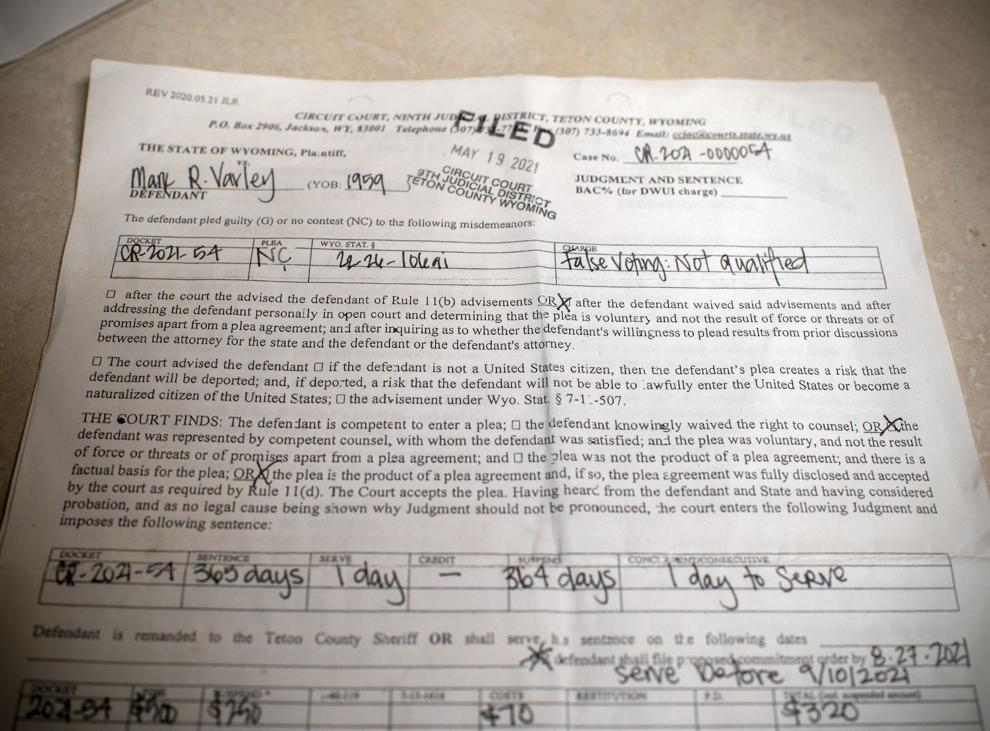 REV 2020.05.21 JLR
CIRCUIT COURT, NINTH JUDICIAL DISTRICT, TETON COUNTY, WYOMING
P.O. Box 2906, Jackson, WY, 83001 Telephone (307) (307) 733-8694 Email:
FILED
MAY 19 2021
CIRCUIT COURT
9TH JUDICIAL DISTRICT
TETON COUNTY WYOMING
THE STATE OF WYOMING, Plaintiff,
vs.
Mark R. Varley (YOB: 1959
DEFENDANT
Case No. CR-2021-0000054
JUDGMENT AND SENTENCE
BAC% (for DWUI charge)
The defendant pled guilty (G) or no contest (NC) to the following misdemeanors:
DOCKET PLEA WYO. STAT. § CHARGE
CR-2021-54 NC False Voting: Not qualified
☐ after the court the advised the defendant of Rule 11(b) advisements OR X after the defendant waived said advisements and after
addressing the defendant personally in open court and determining that the plea is voluntary and not the result of force or threats or of
promises apart from a plea agreement; and after inquiring as to whether the defendant's willingness to plead results from prior discussions
between the attorney for the state and the defendant or the defendant's attorney.
☐ The court advised the defendant ☐ if the defendant is not a United States citizen, then the defendant's plea creates a risk that the
defendant will be deported; and, if deported, a risk that the defendant will not be able to lawfully enter the United States or become a
naturalized citizen of the United States; ☐ the advisement under Wyo. Stat. § 7-11-507.
THE COURT FINDS: The defendant is competent to enter a plea; ☐ the defendant knowingly waived the right to counsel; OR X the
defendant was represented by competent counsel, with whom the defendant was satisfied; and the plea was voluntary, and not the result
of force or threats or of promises apart from a plea agreement; and ☐ the plea was not the product of a plea agreement; and there is a
factual basis for the plea; OR X the plea is the product of a plea agreement and, if so, the plea agreement was fully disclosed and accepted
by the court as required by Rule 11(d). The Court accepts the plea. Having heard from the defendant and State and having considered
probation, and as no legal cause being shown why Judgment should not be pronounced, the court enters the following Judgment and
imposes the following sentence:
DOCKET SENTENCE SERVE CREDIT SUSPEND CONCURRENT/CONSECUTIVE
CR-2021-54 365 days 1 day — 364 days 1 day to serve
Defendant is remanded to the Teton County Sheriff OR shall serve his sentence on the following dates
X defendant shall file proposed commitment order by 8.27.2021
serve before 9/10/2021
DOCKET COSTS RESTITUTION P.D.
2021-54 $500 $250 $70 $320